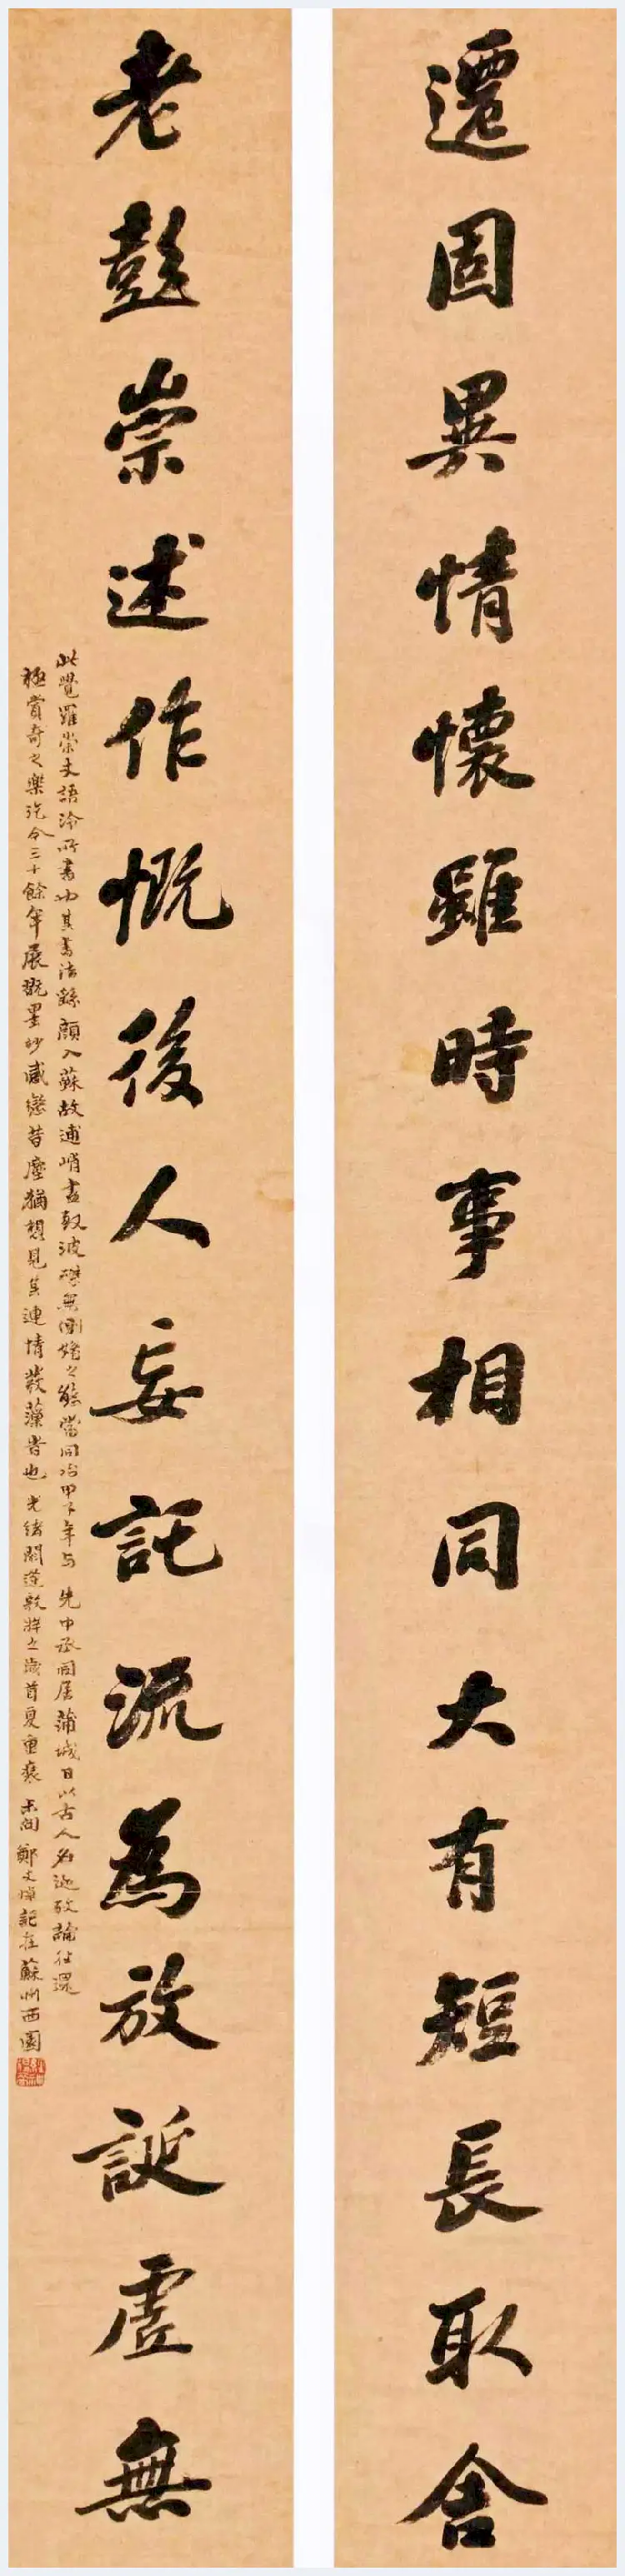 遷固異情懷雖時事相同大有短長取舍
老彭崇述作慨後人妄託流為放誕虛無
此覺羅崇文語泠所書也其書法繇顏入蘇故逋峭盡致波磔無 之 當同治甲下年与 先中丞同居蒲城日以古人名迹 論往還
極賞奇之樂迄今三十餘年展翫墨妙感戀昔塵猶想見其連情發藻昔也 光緒閼逢敦牂之歲首夏重裝 未問 鄭文焯記在蘇州西園